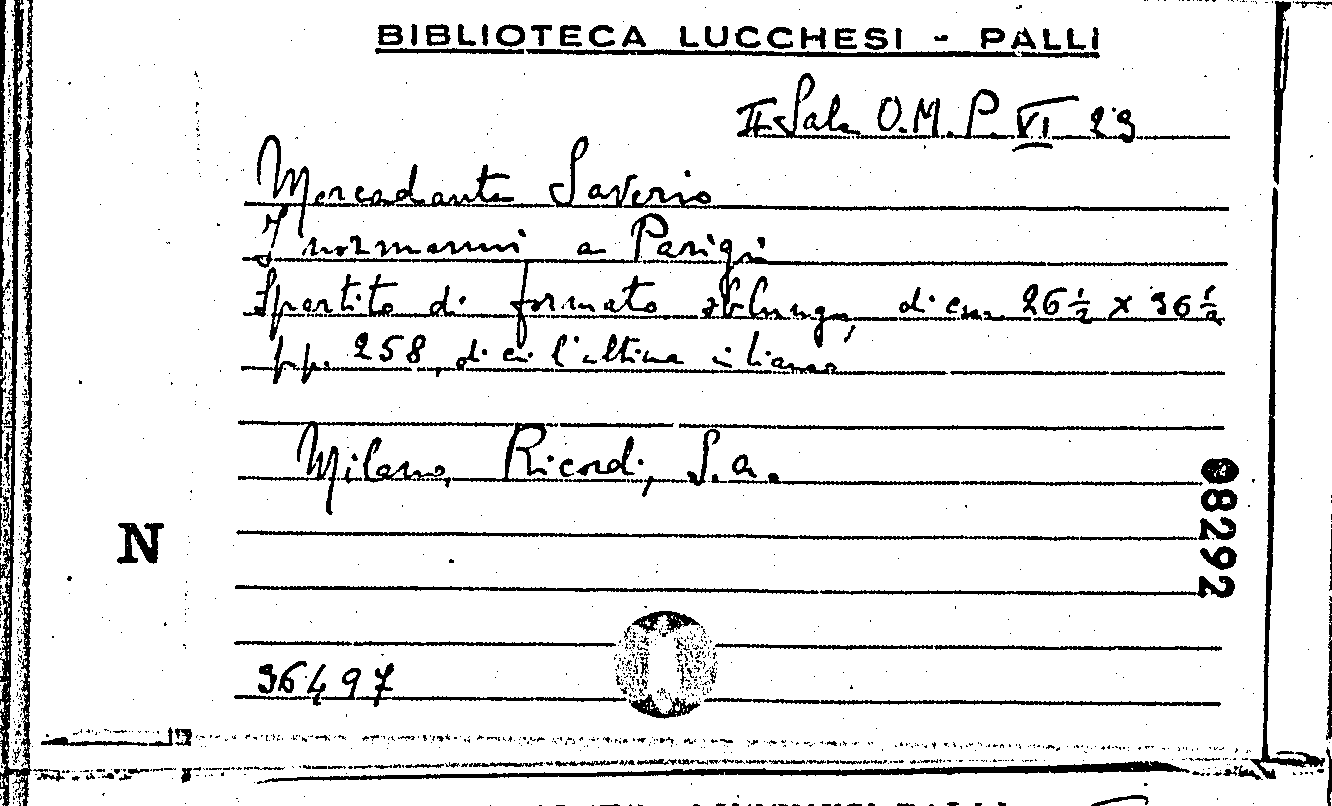 BIBLIOTECA LUCCHESI - PALLI
II Sala O.M.P. VI 29
Mercadante Saverio
I normanni a Parigi
Spartito di formato oblungo, di cm. 26 ½ x 36 ½
pp. 258, di cui l'ultima in bianco
Milano, Ricordi, S.a.
98292
N
36497